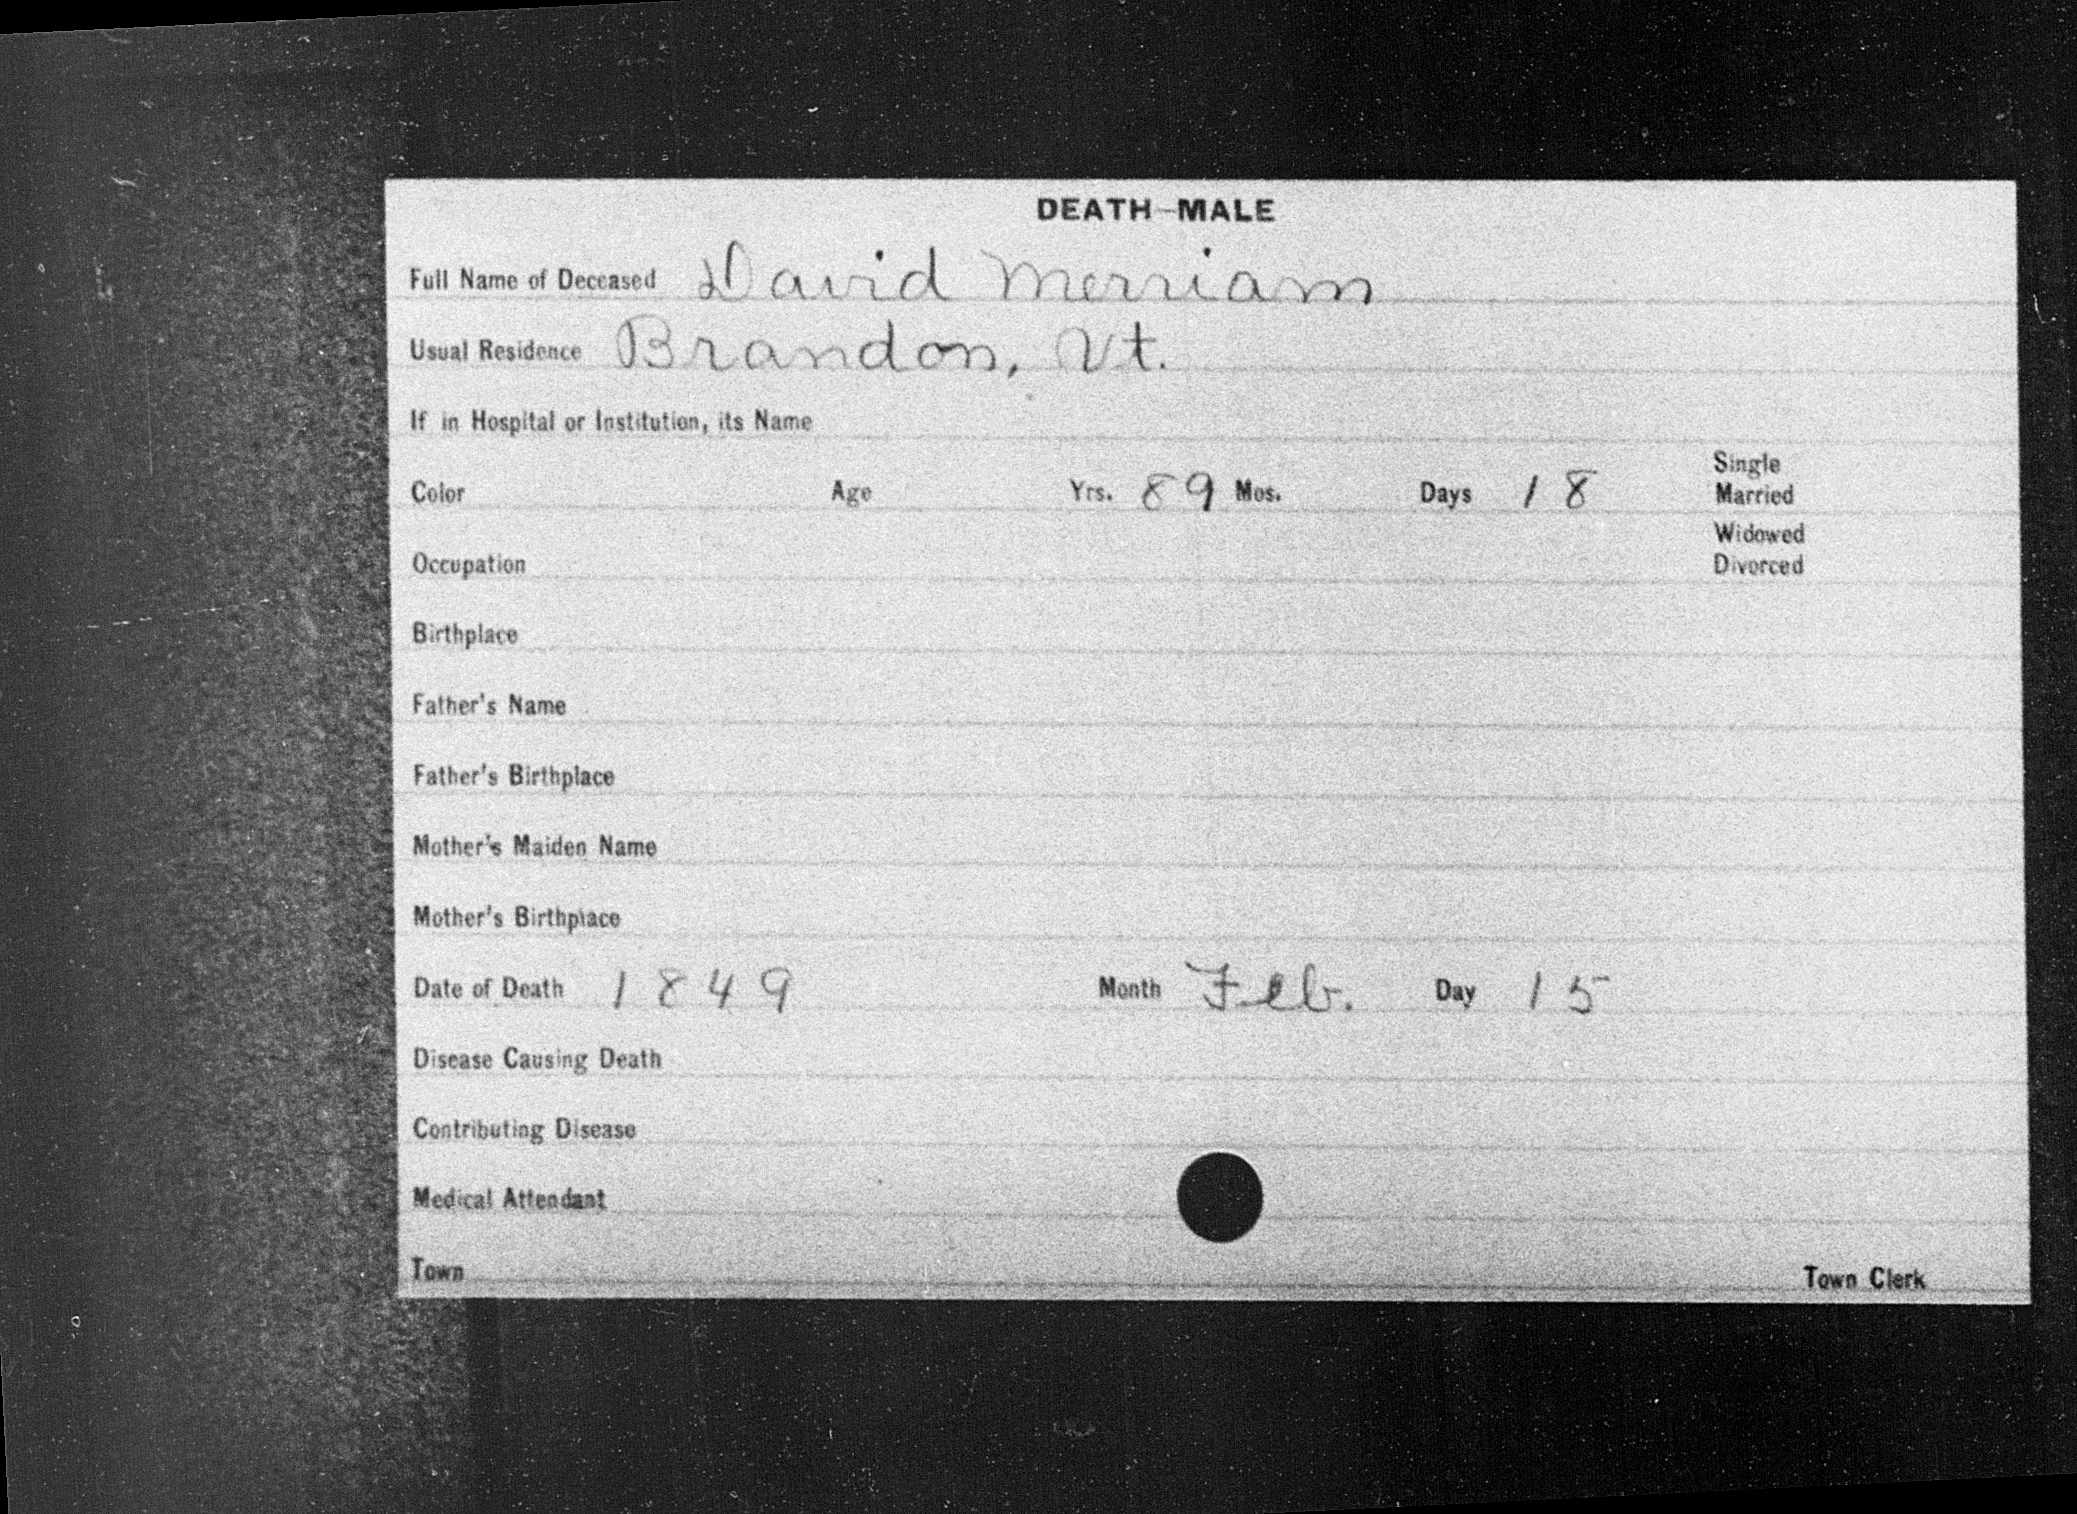 DEATH-MALE
Full Name of Deceased David Merriam
Usual Residence Brandon, Vt.
If in Hospital or Institution, its Name
Single
Color Age Yrs. 89 Mos. Days 18 Married
Widowed
Occupation Divorced
Birthplace
Father's Name
Father's Birthplace
Mother's Maiden Name
Mother's Birthplace
Date of Death 1849 Month Feb. Day 15
Disease Causing Death
Contributing Disease
Medical Attendant
Town Town Clerk